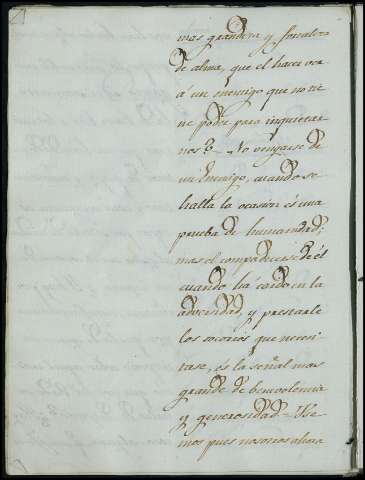 mas grandeza y fortaleza
de alma, que el hacer
á un enemigo que no tie
ne poder para inquietar
nos? No vengarse de
un Enemigo, cuando se
halla la ocasion és una
prueba de humanidad;
mas el compadecerse de él
cuando há caido en la
adversidad, y prestarle
los socorros que necesi-
tase, és la señal mas
grande de benevolencia
y generosidad =
mos pues nosotros ahora